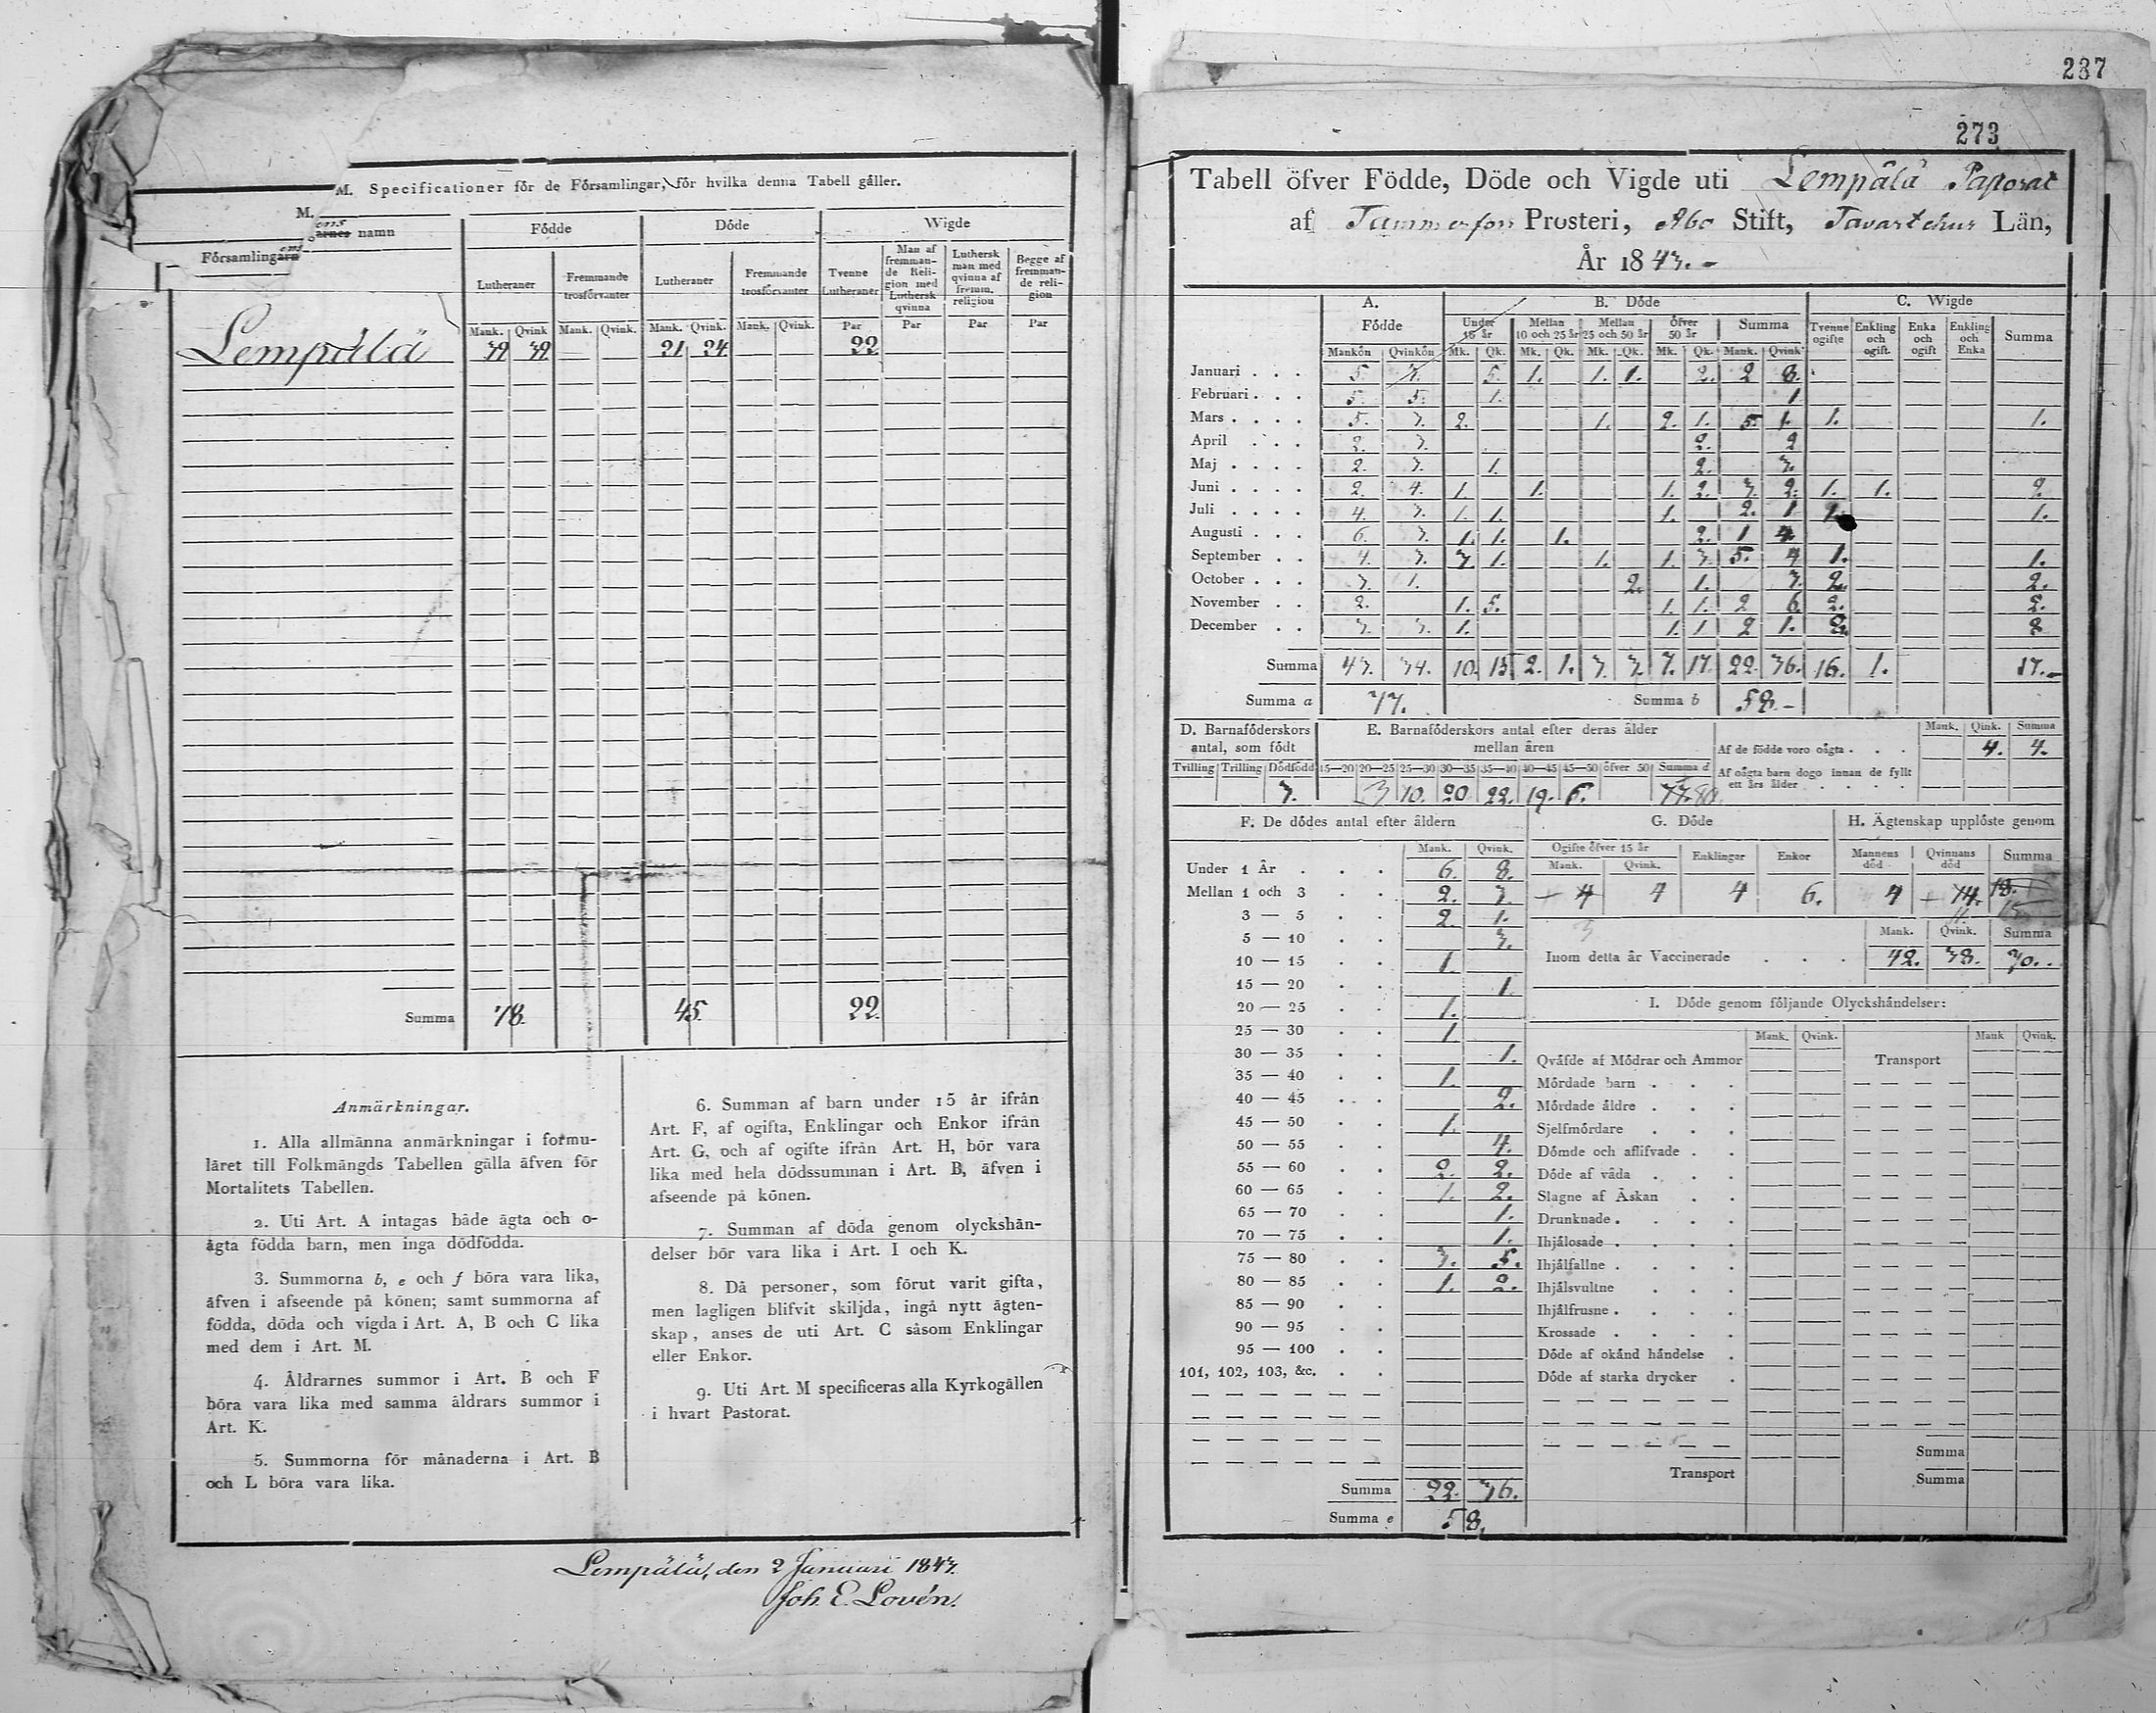 M. Specificationer för de Församlingar, för hvilka denna Tabell gäller.
M.
ens
arnes namn
Församlingarn
ens
Födde
Döde
Wigde
Lutheraner
Fremmande trosförvanter
Lutheraner
Fremmande trosförvanter
Tvenne Lutheraner
Man af fremmande Religion med Luthersk qvinna
Luthersk man med qvinna af fremm. religion
Begge af fremmande religion
Mank. Qvink Mank. Qvink. Mank. Qvink. Mank. Qvink. Par Par Par Par
Lempälä 39 39 21 24 22
Summa 78. 45. 22.
Anmärkningar.
1. Alla allmänna anmärkningar i formu-
läret till Folkmängds Tabellen gälla äfven för
Mortalitets Tabellen.
2. Uti Art. A intagas både ägta och o-
ägta födda barn, men inga dödfödda.
3. Summorna b, e och f böra vara lika,
äfven i afseende på könen; samt summorna af
födda, döda och vigda i Art. A, B och C lika
med dem i Art. M.
4. Åldrarnes summor i Art. B och F
böra vara lika med samma åldrars summor i
Art. K.
5. Summorna för månaderna i Art. B
och L böra vara lika.
6. Summan af barn under 15 år ifrån
Art. F, af ogifta, Enklingar och Enkor ifrån
Art. G, och af ogifte ifrån Art. H, bör vara
lika med hela dödssumman i Art. B, äfven i
afseende på könen.
7. Summan af döda genom olyckshän-
delser bör vara lika i Art. I och K.
8. Då personer, som förut varit gifta,
men lagligen blifvit skiljda, ingå nytt ägten-
skap, anses de uti Art. C såsom Enklingar
eller Enkor.
9. Uti Art. M specificeras alla Kyrkogällen
i hvart Pastorat.
Lempälä, den 2 Januari 1843.
Joh. E. Lovén.
237
273
Tabell öfver Födde, Döde och Vigde uti Lempälä Pastorat
af Tammerfors Prosteri, Åbo Stift, Tavastehus Län,
År 1843.
A.
Födde
B. Döde
C. Wigde
Under 15 år
Mellan 10 och 25 år
Mellan 25 och 50 år
Öfver 50 år
Summa
Tvenne ogifte
Enkling och ogift.
Enka och ogift
Enkling och Enka
Summa
Mankön Qvinkön Mk. Qk. Mk. Qk. Mk. Qk. Mk. Qk. Mank. Qvink
Januari 5. 3. 5. 1. 1. 1. 2. 2 8.
Februari 5. 5. 1. 1
Mars 5. 3. 2. 1. 2. 1. 5. 1. 1. 1.
April 2. 3. 2. 2
Maj 2. 3. 1. 2. 3.
Juni 2. 4. 1. 1. 1. 2. 3. 2. 1. 1. 2.
Juli 4. 3. 1. 1. 1. 2. 1 1. 1.
Augusti 6. 3. 1. 1. 1. 2. 1 4.
September 4. 3. 3. 1. 1. 1. 3. 5. 4 1. 1.
October 3. 1. 2. 1. 3. 2. 2.
November 2. 1. 5. 1. 1. 2 6. 2. 2.
December 3. 3. 1. 1. 1 2 1.
Summa 43. 34. 10. 15 2. 1. 3. 3. 7. 17. 22. 36. 16. 1. 17.
Summa a 77. Summa b 58.
D. Barnaföderskors antal, som födt
E. Barnaföderskors antal efter deras ålder mellan åren
Mank. Qink. Summa
Af de födde voro oägta 4. 4.
Tvilling Trilling Dödfödd 15—20 20—25 25—30 30—35 35—40 40—45 45—50 öfver 50 Summa d
Af oägta barn dogo innan de fyllt
ett års ålder
3. 3 10. 20 22. 19. 6. 77. 80
F. De dödes antal efter åldern
G. Döde
H. Ägtenskap upplöste genom
Mank. Qvink.
Ogifte öfver 15 år
Mank. Qvink.
Enklingar
Enkor
Mannens död
Qvinnans död
Summa
4 4 4 6. 4 14. 18.
Mank. Qvink. Summa
Inom detta år Vaccinerade 42. 38. 70.
Under 1 År 6. 8.
Mellan 1 och 3 2. 3.
3 — 5 2. 1.
5 — 10 3.
10 — 15 1.
15 — 20 1.
20 — 25 1.
25 — 30 1.
30 — 35 1.
35 — 40 1.
40 — 45 2.
45 — 50 1.
50 — 55 4.
55 — 60 2. 2.
60 — 65 1. 2.
65 — 70 1.
70 — 75 1.
75 — 80 3. 5.
80 — 85 1. 2.
85 — 90
90 — 95
95 — 100
101, 102, 103, &c.
Summa 22. 36.
Summa e 58.
I. Döde genom följande Olyckshändelser:
Mank. Qvink. Mank Qvink.
Qväfde af Mödrar och Ammor
Transport
Mördade barn
Mördade äldre
Sjelfmördare
Dömde och aflifvade
Döde af våda
Slagne af Åskan
Drunknade
Ihjälosade
Ihjälfallne
Ihjälsvultne
Ihjälfrusne
Krossade
Döde af okänd händelse
Döde af starka drycker
Transport
Summa
Summa